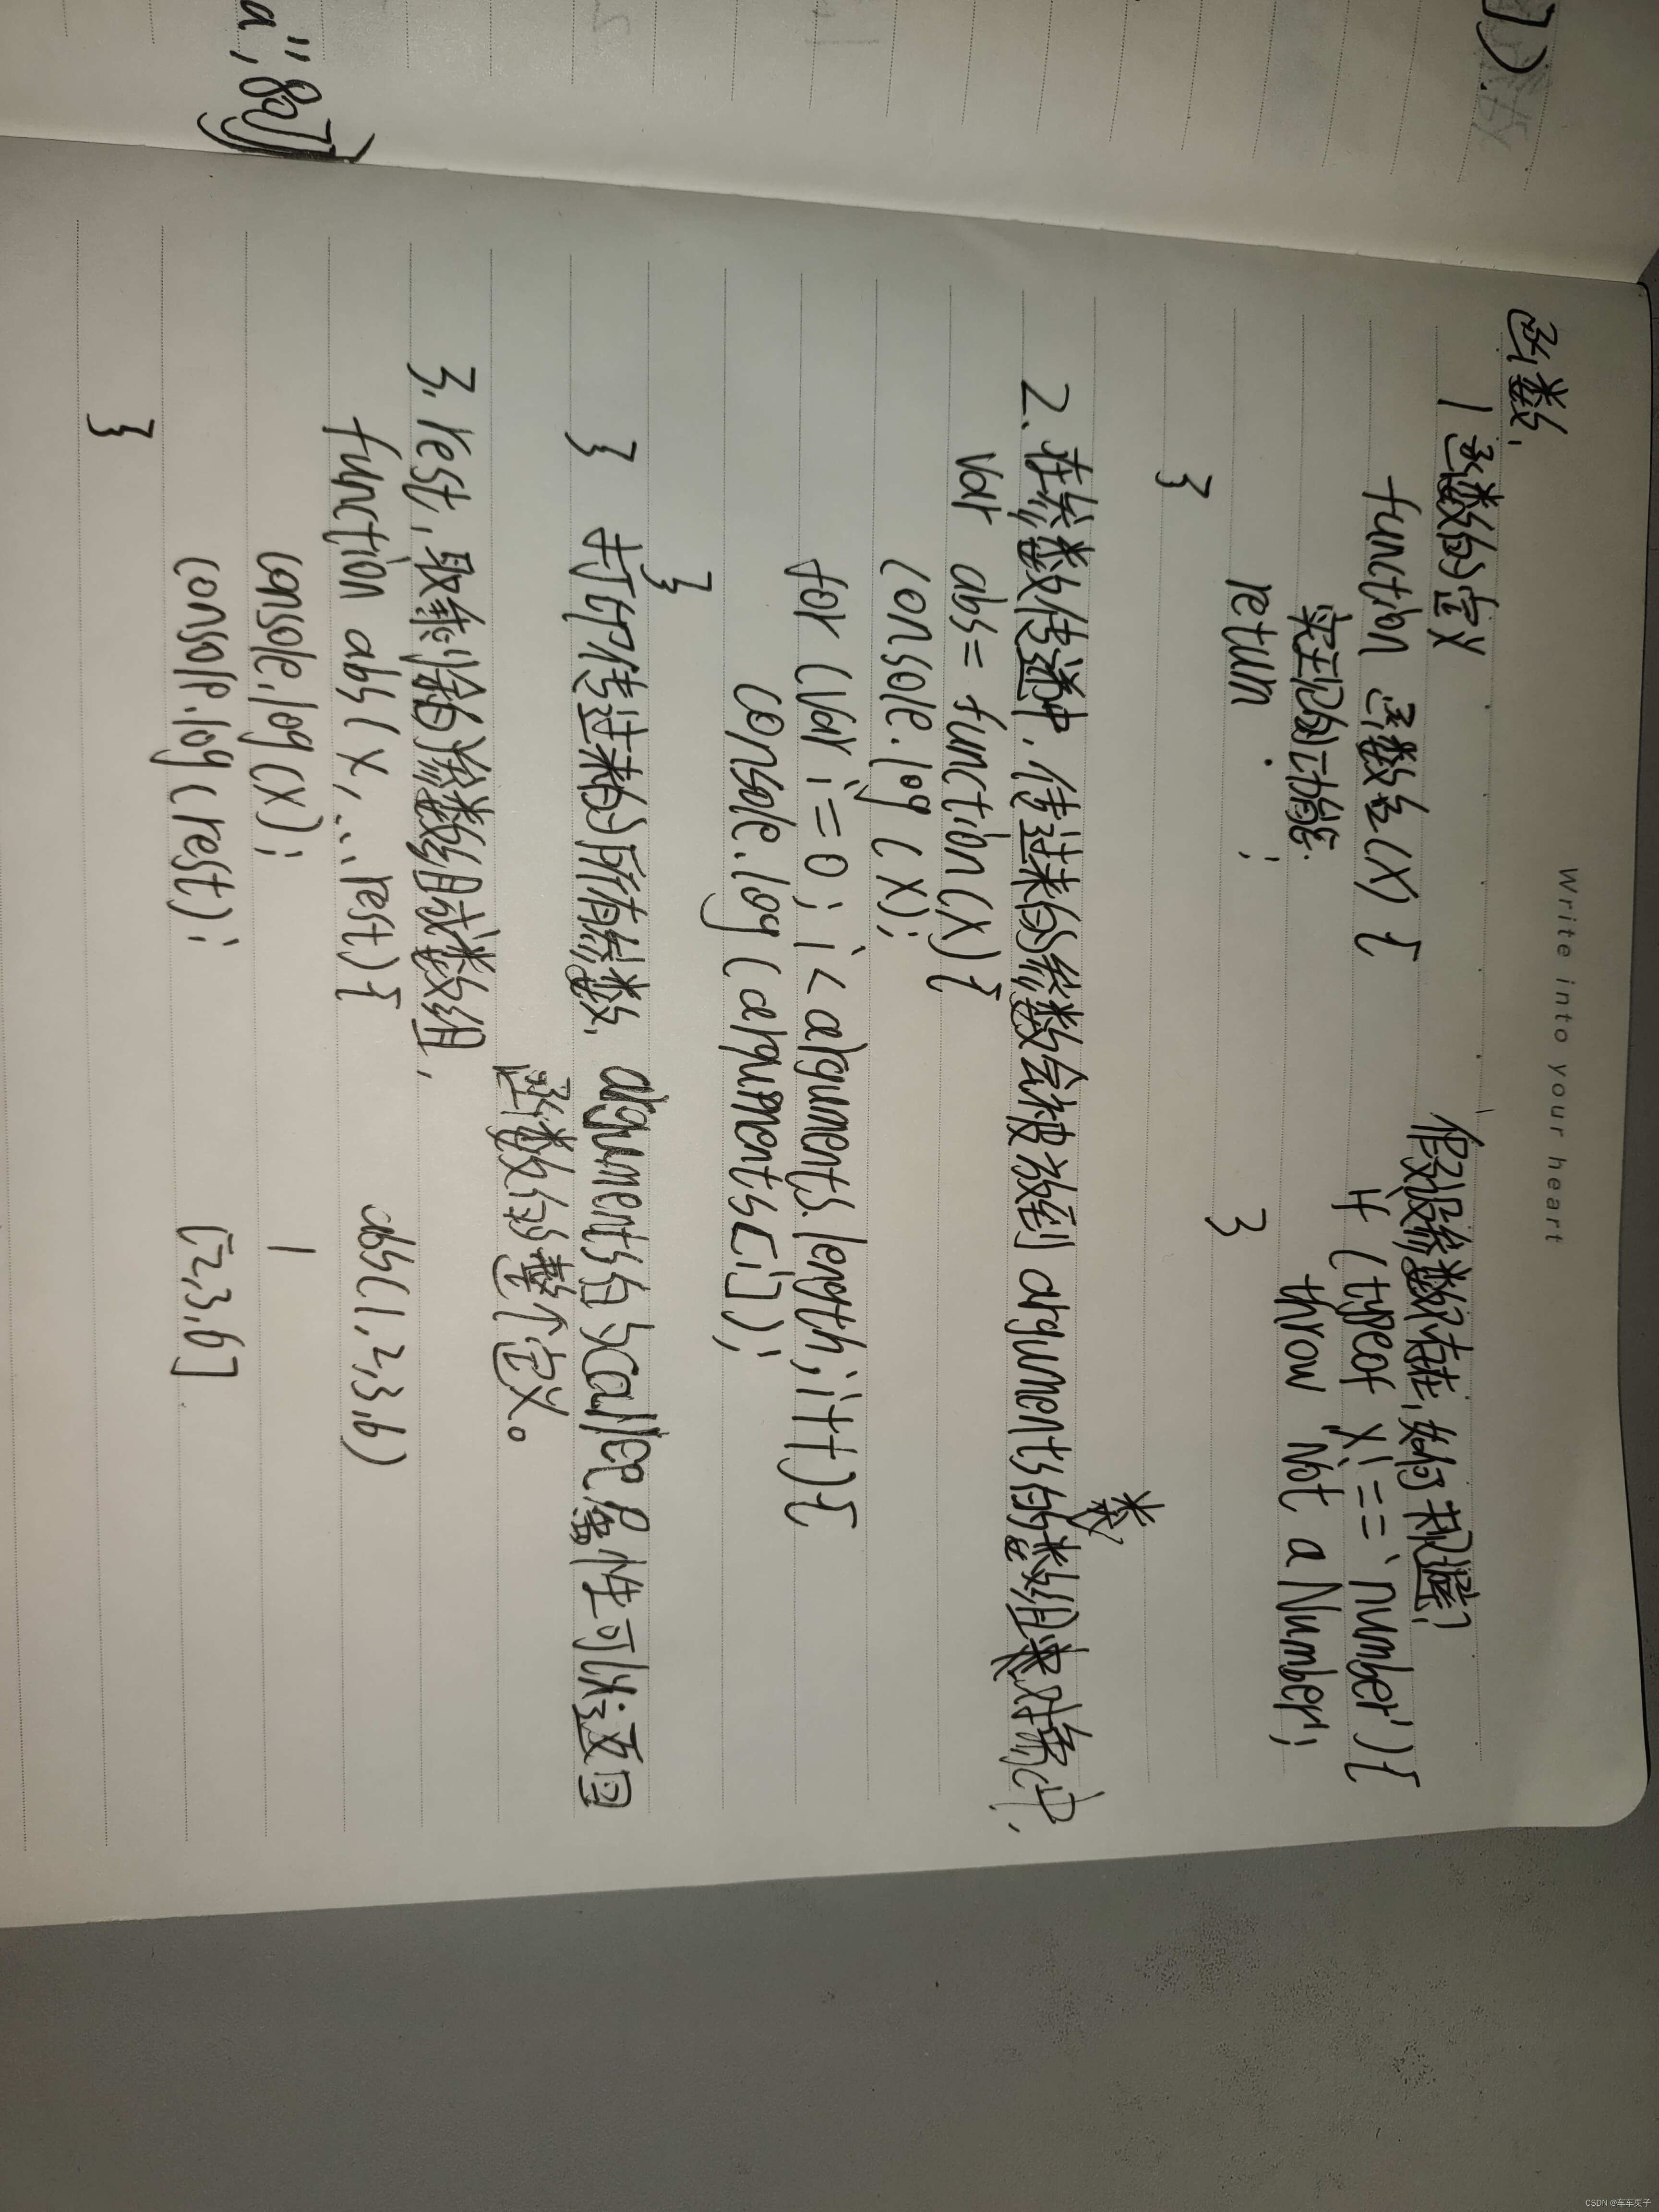 Write into your heart
函数,
1 函数的定义
function 函数名(x) {
实现的功能.
return ;
}
假设参数不存在,如何规避?
if (typeof x !== 'number') {
throw 'Not a Number';
}
2. 在参数传递中,传过来的参数会被放到 arguments的类数组对象中,
var abs = function(x){
console.log(x);
for (var i=0; i<arguments.length; i++){
console.log(arguments[i]);
}
} 打印传过来的所有参数, arguments的callee属性可以返回
函数的整个定义。
3. rest, 取剩余的参数组成数组,
function abs(x, ...rest){
console.log(x);
console.log(rest);
}
abs(1,2,3,6)
1
[2,3,6]
a", 80])
])
CSDN @车车栗子